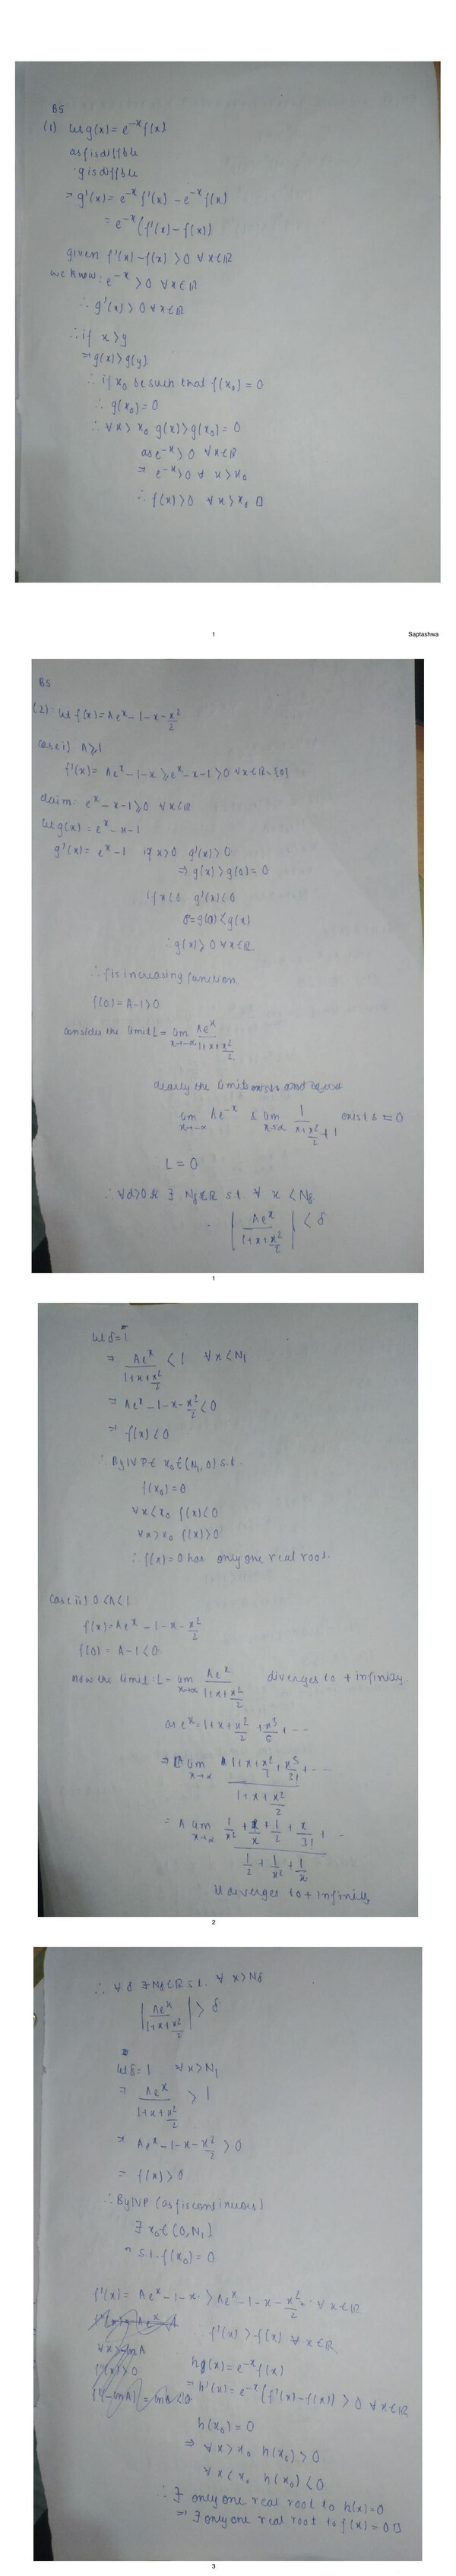 B5
(1) let g(x) = e^{-x} f(x)
as f is diffble
g is diffble
⇒ g'(x) = e^{-x} f'(x) - e^{-x} f(x)
= e^{-x} (f'(x) - f(x))
given f'(x) - f(x) > 0 ∀ x ∈ ℝ
we know: e^{-x} > 0 ∀ x ∈ ℝ
∴ g'(x) > 0 ∀ x ∈ ℝ
∴ if x > y
⇒ g(x) > g(y)
∴ if x_0 be such that f(x_0) = 0
∴ g(x_0) = 0
∴ ∀ x > x_0 g(x) > g(x_0) = 0
as e^{-x} > 0 ∀ x ∈ ℝ
⇒ e^{-x} > 0 ∀ x > x_0
∴ f(x) > 0 ∀ x > x_0 □
1 Saptashwa
B5
(2) let f(x) = Ae^x - 1 - x - x^2/2
case i) A ≥ 1
f'(x) = Ae^x - 1 - x ≥ e^x - x - 1 > 0 ∀ x ∈ ℝ \ {0}
claim: e^x - x - 1 ≥ 0 ∀ x ∈ ℝ
let g(x) = e^x - x - 1
g'(x) = e^x - 1 if x > 0 g'(x) > 0
⇒ g(x) > g(0) = 0
if x < 0 g'(x) < 0
0 = g(0) < g(x)
∴ g(x) ≥ 0 ∀ x ∈ ℝ
∴ f is increasing function
f(0) = A - 1 ≥ 0
consider the limit L = lim_{x→-∞} Ae^x / (1 + x + x^2/2)
clearly the limit exists and
lim_{x→-∞} Ae^{-x} & lim_{x→∞} 1 / (x + x^2/2 + 1) exists = 0
L = 0
∴ ∀ δ > 0 ∃ N_δ ∈ ℝ s.t. ∀ x < N_δ
|Ae^x / (1 + x + x^2/2)| < δ
1
let δ = 1
⇒ Ae^x / (1 + x + x^2/2) < 1 ∀ x < N_1
⇒ Ae^x - 1 - x - x^2/2 < 0
⇒ f(x) < 0
∴ By IVP ∃ x_0 ∈ (N_1, 0) s.t.
f(x_0) = 0
∀ x < x_0 f(x) < 0
∀ x > x_0 f(x) > 0
∴ f(x) = 0 has only one real root.
case ii) 0 < A < 1
f(x) = Ae^x - 1 - x - x^2/2
f(0) = A - 1 < 0
now the limit: L = lim_{x→∞} Ae^x / (1 + x + x^2/2) diverges to + infinity.
as e^x = 1 + x + x^2/2 + x^3/6 + ...
⇒ lim_{x→∞} A (1 + x + x^2/2 + x^3/3! + ...) / (1 + x + x^2/2)
= A lim_{x→∞} (1/x^2 + 1/x + 1/2 + x/3! + ...) / (1/2 + 1/x^2 + 1/x)
It diverges to + infinity
2
∴ ∀ δ ∃ N_δ ∈ ℝ s.t. ∀ x > N_δ
|Ae^x / (1 + x + x^2/2)| > δ
let δ = 1 ∀ x > N_1
⇒ Ae^x / (1 + x + x^2/2) > 1
⇒ Ae^x - 1 - x - x^2/2 > 0
= f(x) > 0
∴ By IVP (as f is continuous)
∃ x_0 ∈ (0, N_1)
s.t. f(x_0) = 0
f'(x) = Ae^x - 1 - x > Ae^x - 1 - x - x^2/2 ∀ x ∈ ℝ
f'(x) > f(x) ∀ x ∈ ℝ
∀ x > -ln A
f''(x) > 0
h(x) = e^{-x} f(x)
⇒ h'(x) = e^{-x} (f'(x) - f(x)) > 0 ∀ x ∈ ℝ
h(x_0) = 0
⇒ ∀ x > x_0 h(x_0) > 0
∀ x < x_0 h(x_0) < 0
∴ ∃ only one real root to h(x) = 0
⇒ ∃ only one real root to f(x) = 0 □
3